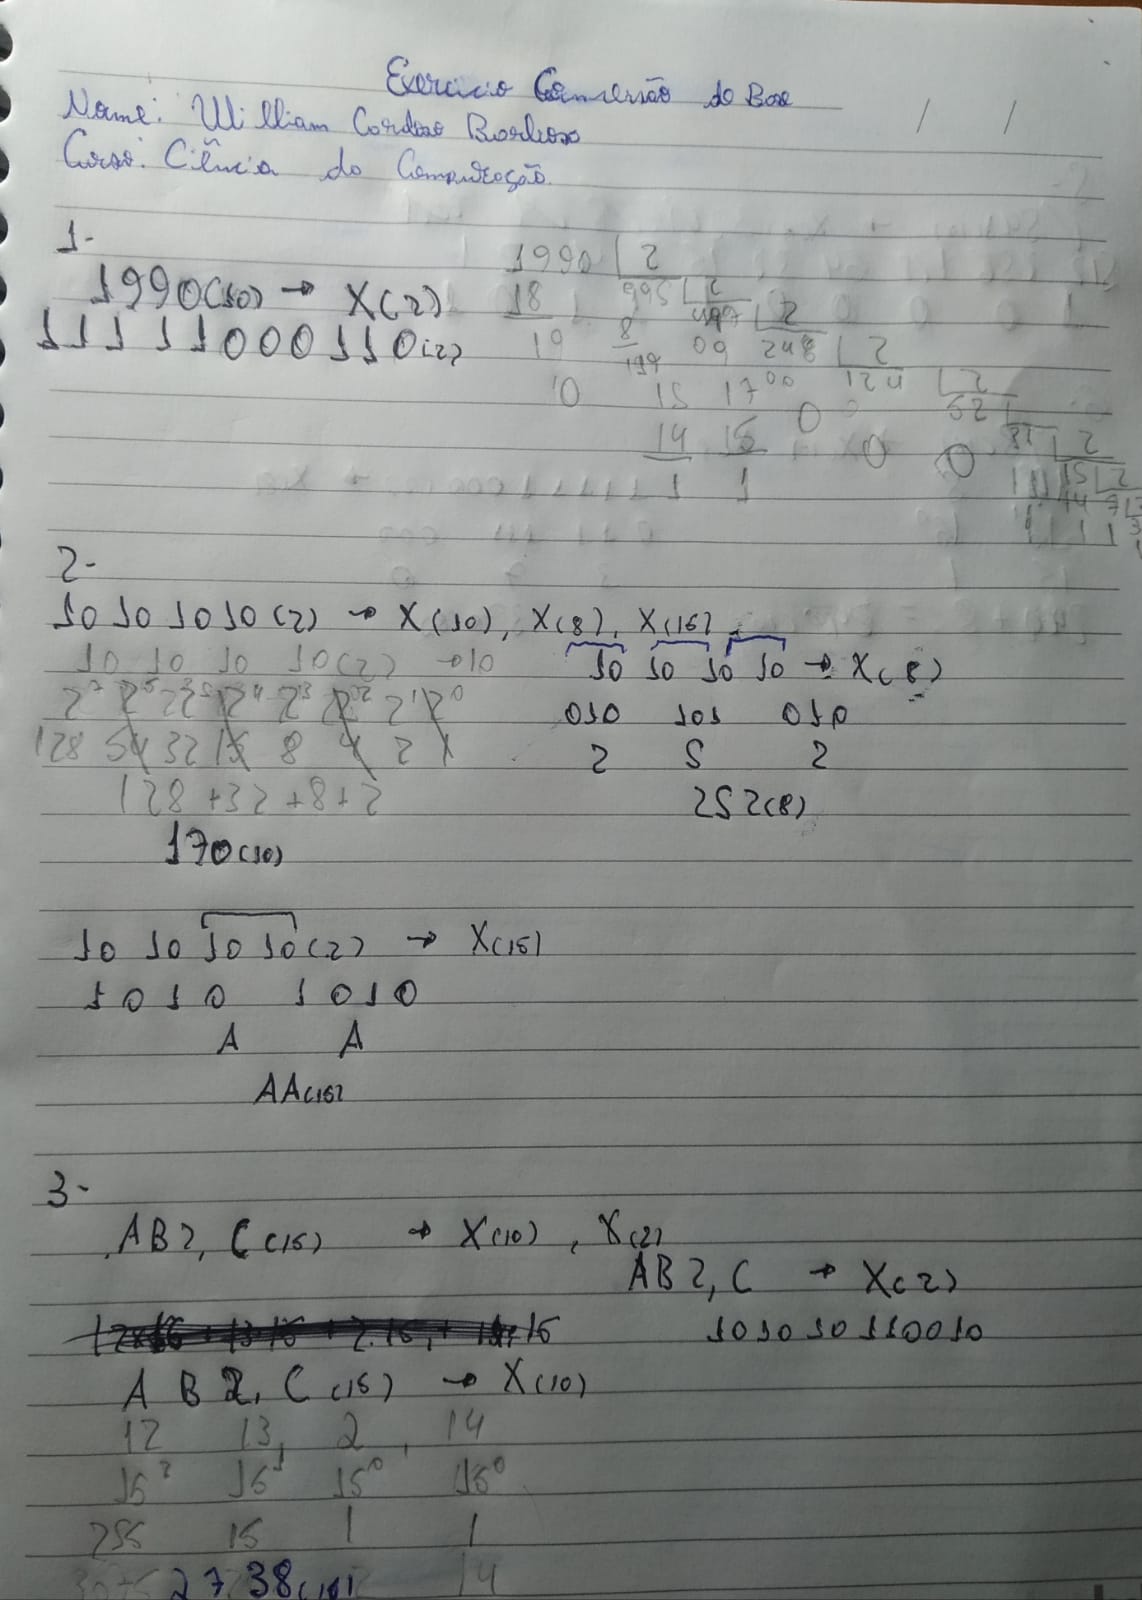 Exercício Conversão de Base
/ /
Nome: William Cardoso Barbosa
Curso: Ciência da Computação
1-
1990(10) → X(2)
11111000110(2)
1990 2
18 995 2
19 8 497 2
199 09 248 2
0 15 17 00 124 2
14 16 0 0 62
1 1 0 0 31 2
15 2
14 7
1 1
2-
10 10 10 10 (2) → X(10), X(8), X(16)
10 10 10 10(2) → 10
2⁷ 2⁶ 2⁵ 2⁴ 2³ 2² 2¹ 2⁰
128 64 32 16 8 4 2 1
128 + 32 + 8 + 2
170(10)
10 10 10 10 → X(8)
010 101 010
2 5 2
252(8)
10 10 10 10(2) → X(16)
1010 1010
A A
AA(16)
3-
AB2, C(16) → X(10), X(2)
AB2, C → X(2)
101010110010
A B 2, C (16) → X(10)
12 13, 2, 14
16² 16¹ 16⁰ 16⁰
256 16 1 1
2738(10) 14